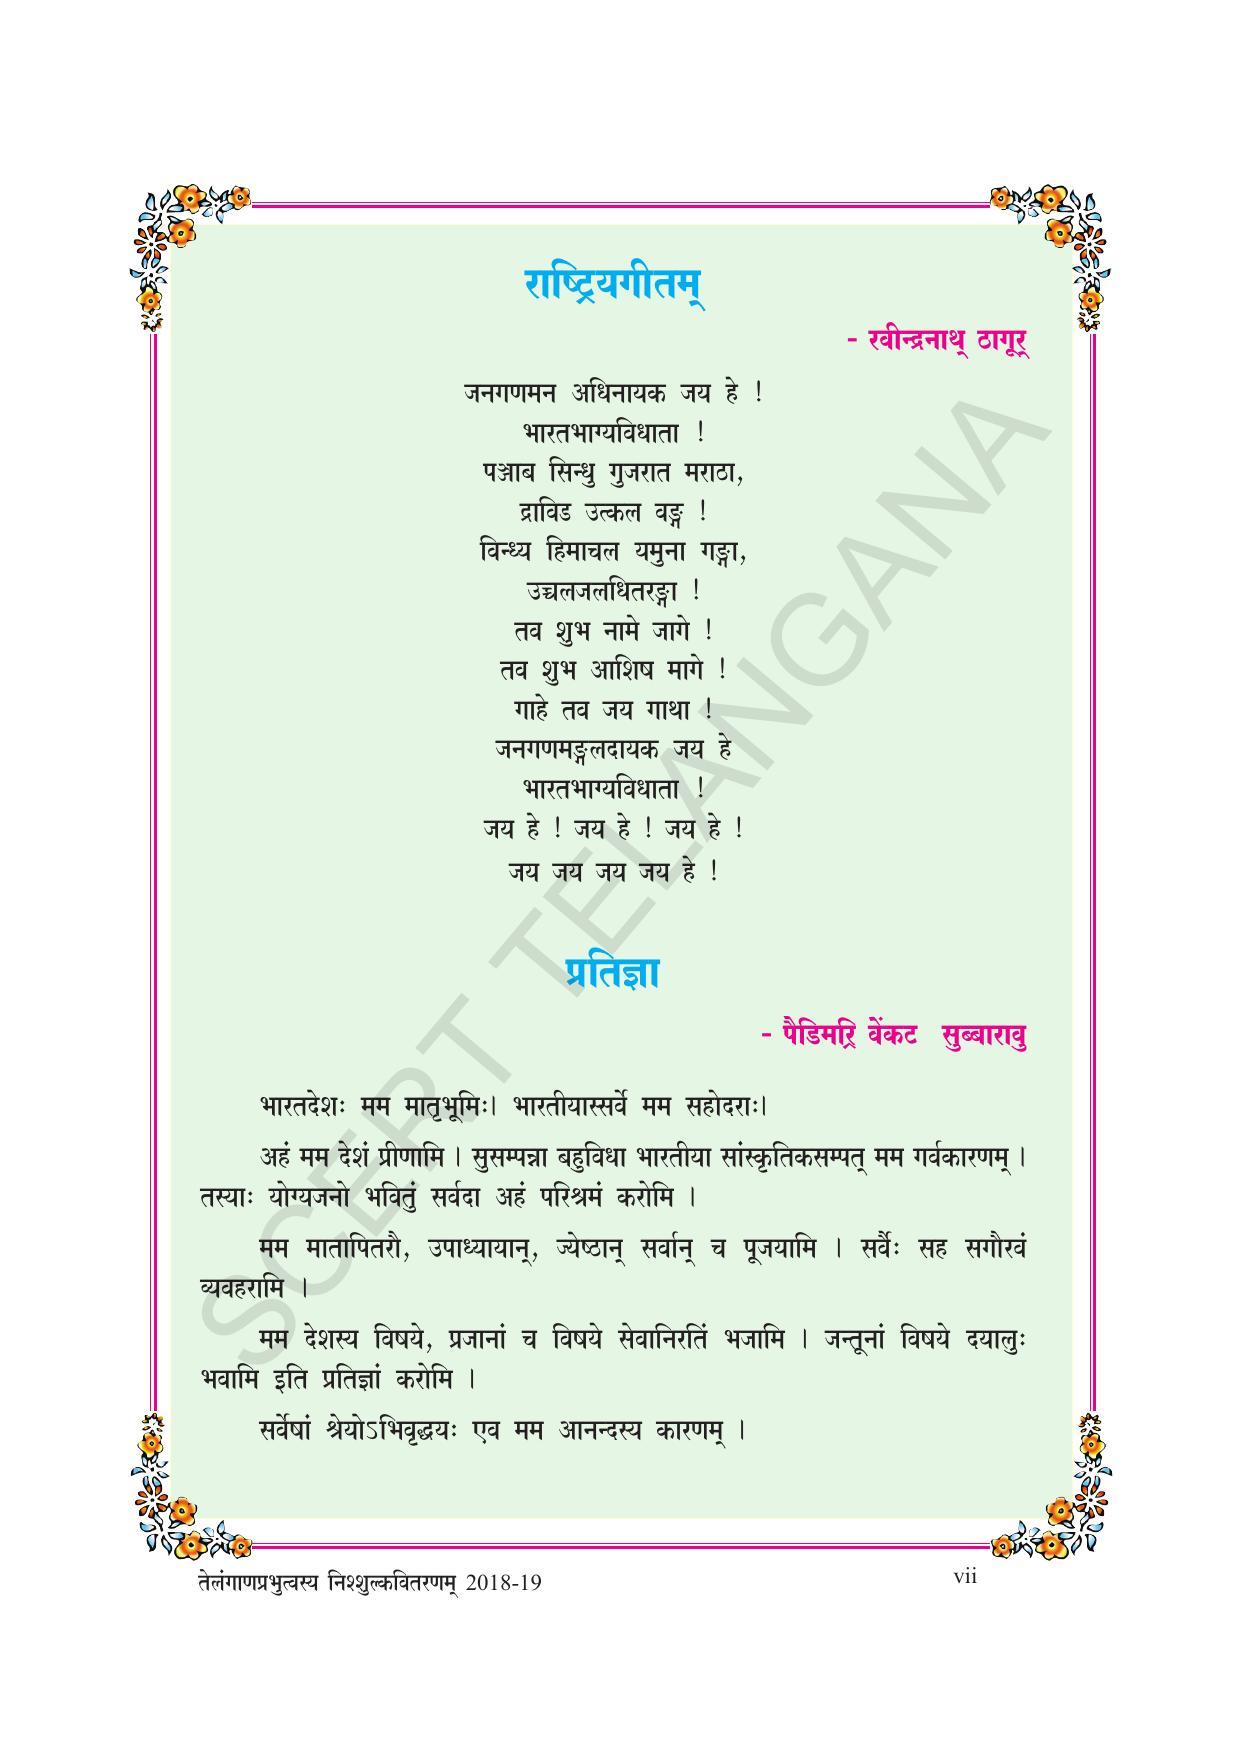 राष्ट्रियगीतम्
- रवीन्द्रनाथ् ठागूर्
जनगणमन अधिनायक जय हे !
भारतभाग्यविधाता !
पञ्जाब सिन्धु गुजरात मराठा,
द्राविड उत्कल वङ्ग !
विन्ध्य हिमाचल यमुना गङ्गा,
उच्चलजलधितरङ्गा !
तव शुभ नामे जागे !
तव शुभ आशिष मागे !
गाहे तव जय गाथा !
जनगणमङ्गलदायक जय हे
भारतभाग्यविधाता !
जय हे ! जय हे ! जय हे !
जय जय जय जय हे !
प्रतिज्ञा
- पैडिमर्रि वेंकट सुब्बारावु
भारतदेशः मम मातृभूमिः। भारतीयास्सर्वे मम सहोदराः।
अहं मम देशं प्रीणामि । सुसम्पन्ना बहुविधा भारतीया सांस्कृतिकसम्पत् मम गर्वकारणम् ।
तस्याः योग्यजनो भवितुं सर्वदा अहं परिश्रमं करोमि ।
मम मातापितरौ, उपाध्यायान्, ज्येष्ठान् सर्वान् च पूजयामि । सर्वैः सह सगौरवं
व्यवहरामि ।
मम देशस्य विषये, प्रजानां च विषये सेवानिरतिं भजामि । जन्तूनां विषये दयालुः
भवामि इति प्रतिज्ञां करोमि ।
सर्वेषां श्रेयोऽभिवृद्धयः एव मम आनन्दस्य कारणम् ।
SCERT TELANGANA
तेलंगाणप्रभुत्वस्य निश्शुल्कवितरणम् 2018-19
vii